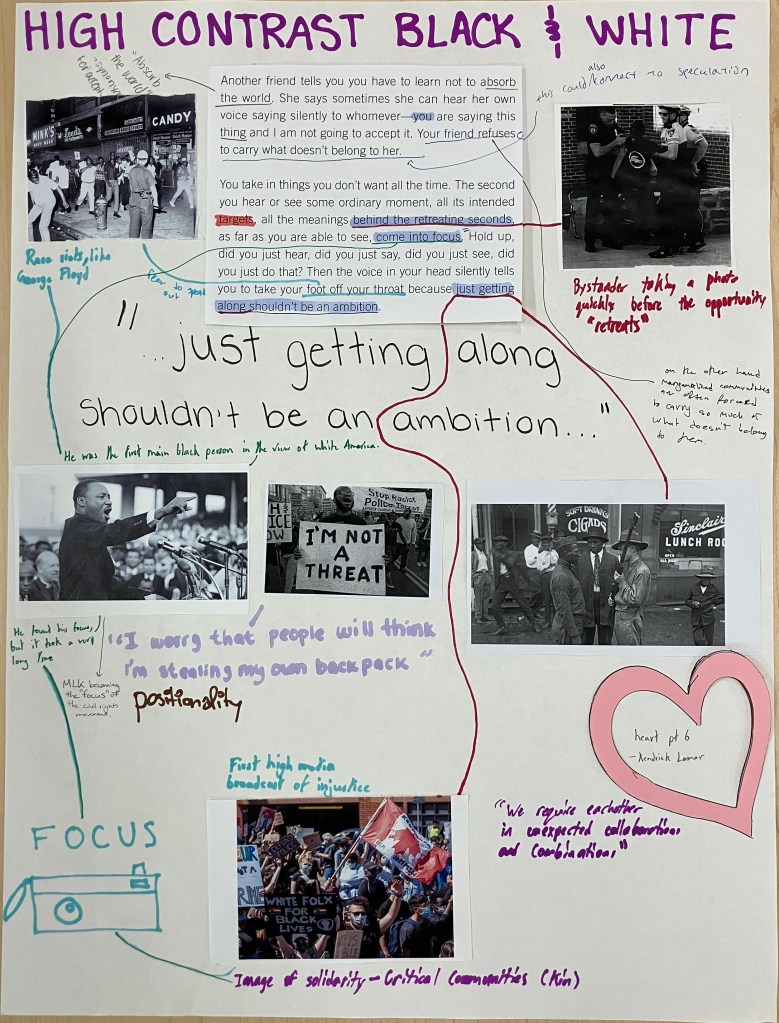 HIGH CONTRAST BLACK & WHITE
"Absorb
the world"
"synonym"
for accept
also
this could connect to speculation
Another friend tells you you have to learn not to absorb
the world. She says sometimes she can hear her own
voice saying silently to whomever—you are saying this
thing and I am not going to accept it. Your friend refuses
to carry what doesn't belong to her.
You take in things you don't want all the time. The second
you hear or see some ordinary moment, all its intended
targets, all the meanings behind the retreating seconds,
as far as you are able to see, come into focus. Hold up,
did you just hear, did you just say, did you just see, did
you just do that? Then the voice in your head silently tells
you to take your foot off your throat because just getting
along shouldn't be an ambition.
MINK'S
CANDY
Race riots, like
George Floyd
Fear to speak
out
Bystander taking a photo
quickly before the opportunity
"retreats"
"...just getting along
shouldn't be an ambition..."
on the other hand
marginalized communities
are often forced
to carry so much of
what doesn't belong
to them.
He was the first main black person in the view of white America.
Stop Racist
Police Terror
I'M NOT
A
THREAT
SOFT DRINKS
CIGARS
Sinclair
LUNCH ROO
He found his focus,
but it took a very
long time
MLK becoming
the "focus" of the
civil rights
movement.
"I worry that people will think
I'm stealing my own backpack"
positionality
heart pt 6
- Kendrick Lamar
First high media
broadcast of injustice
"We require eachother
in unexpected collaborations
and combinations"
WHITE FOLX
FOR
BLACK
LIVES
FOCUS
Image of solidarity - Critical Communities (Kin)